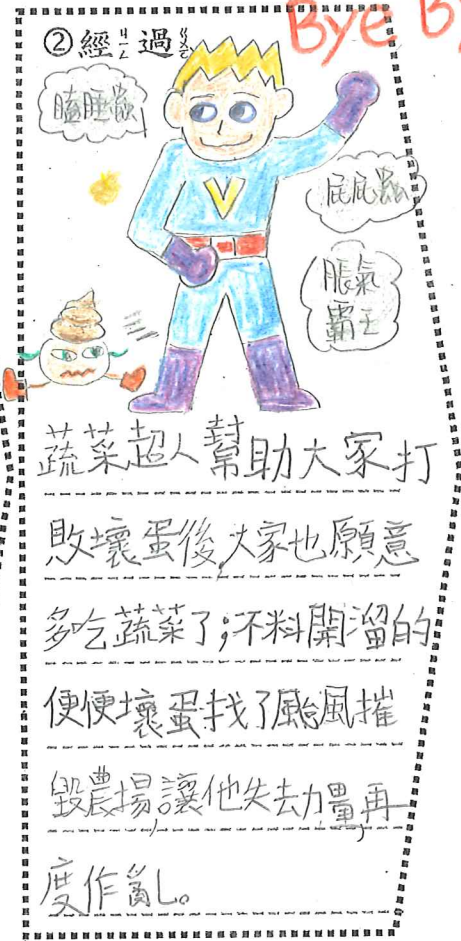 Bye B
②經ㄐㄧㄥ過ㄍㄨㄛˋ
瞌睡蟲
屁屁蟲
脹氣
霸王
V
蔬菜超人幫助大家打
敗壞蛋後,大家也願意
多吃蔬菜了;不料開溜的
便便壞蛋找了颱風摧
毀農場,讓他失去力量,再
度作亂。